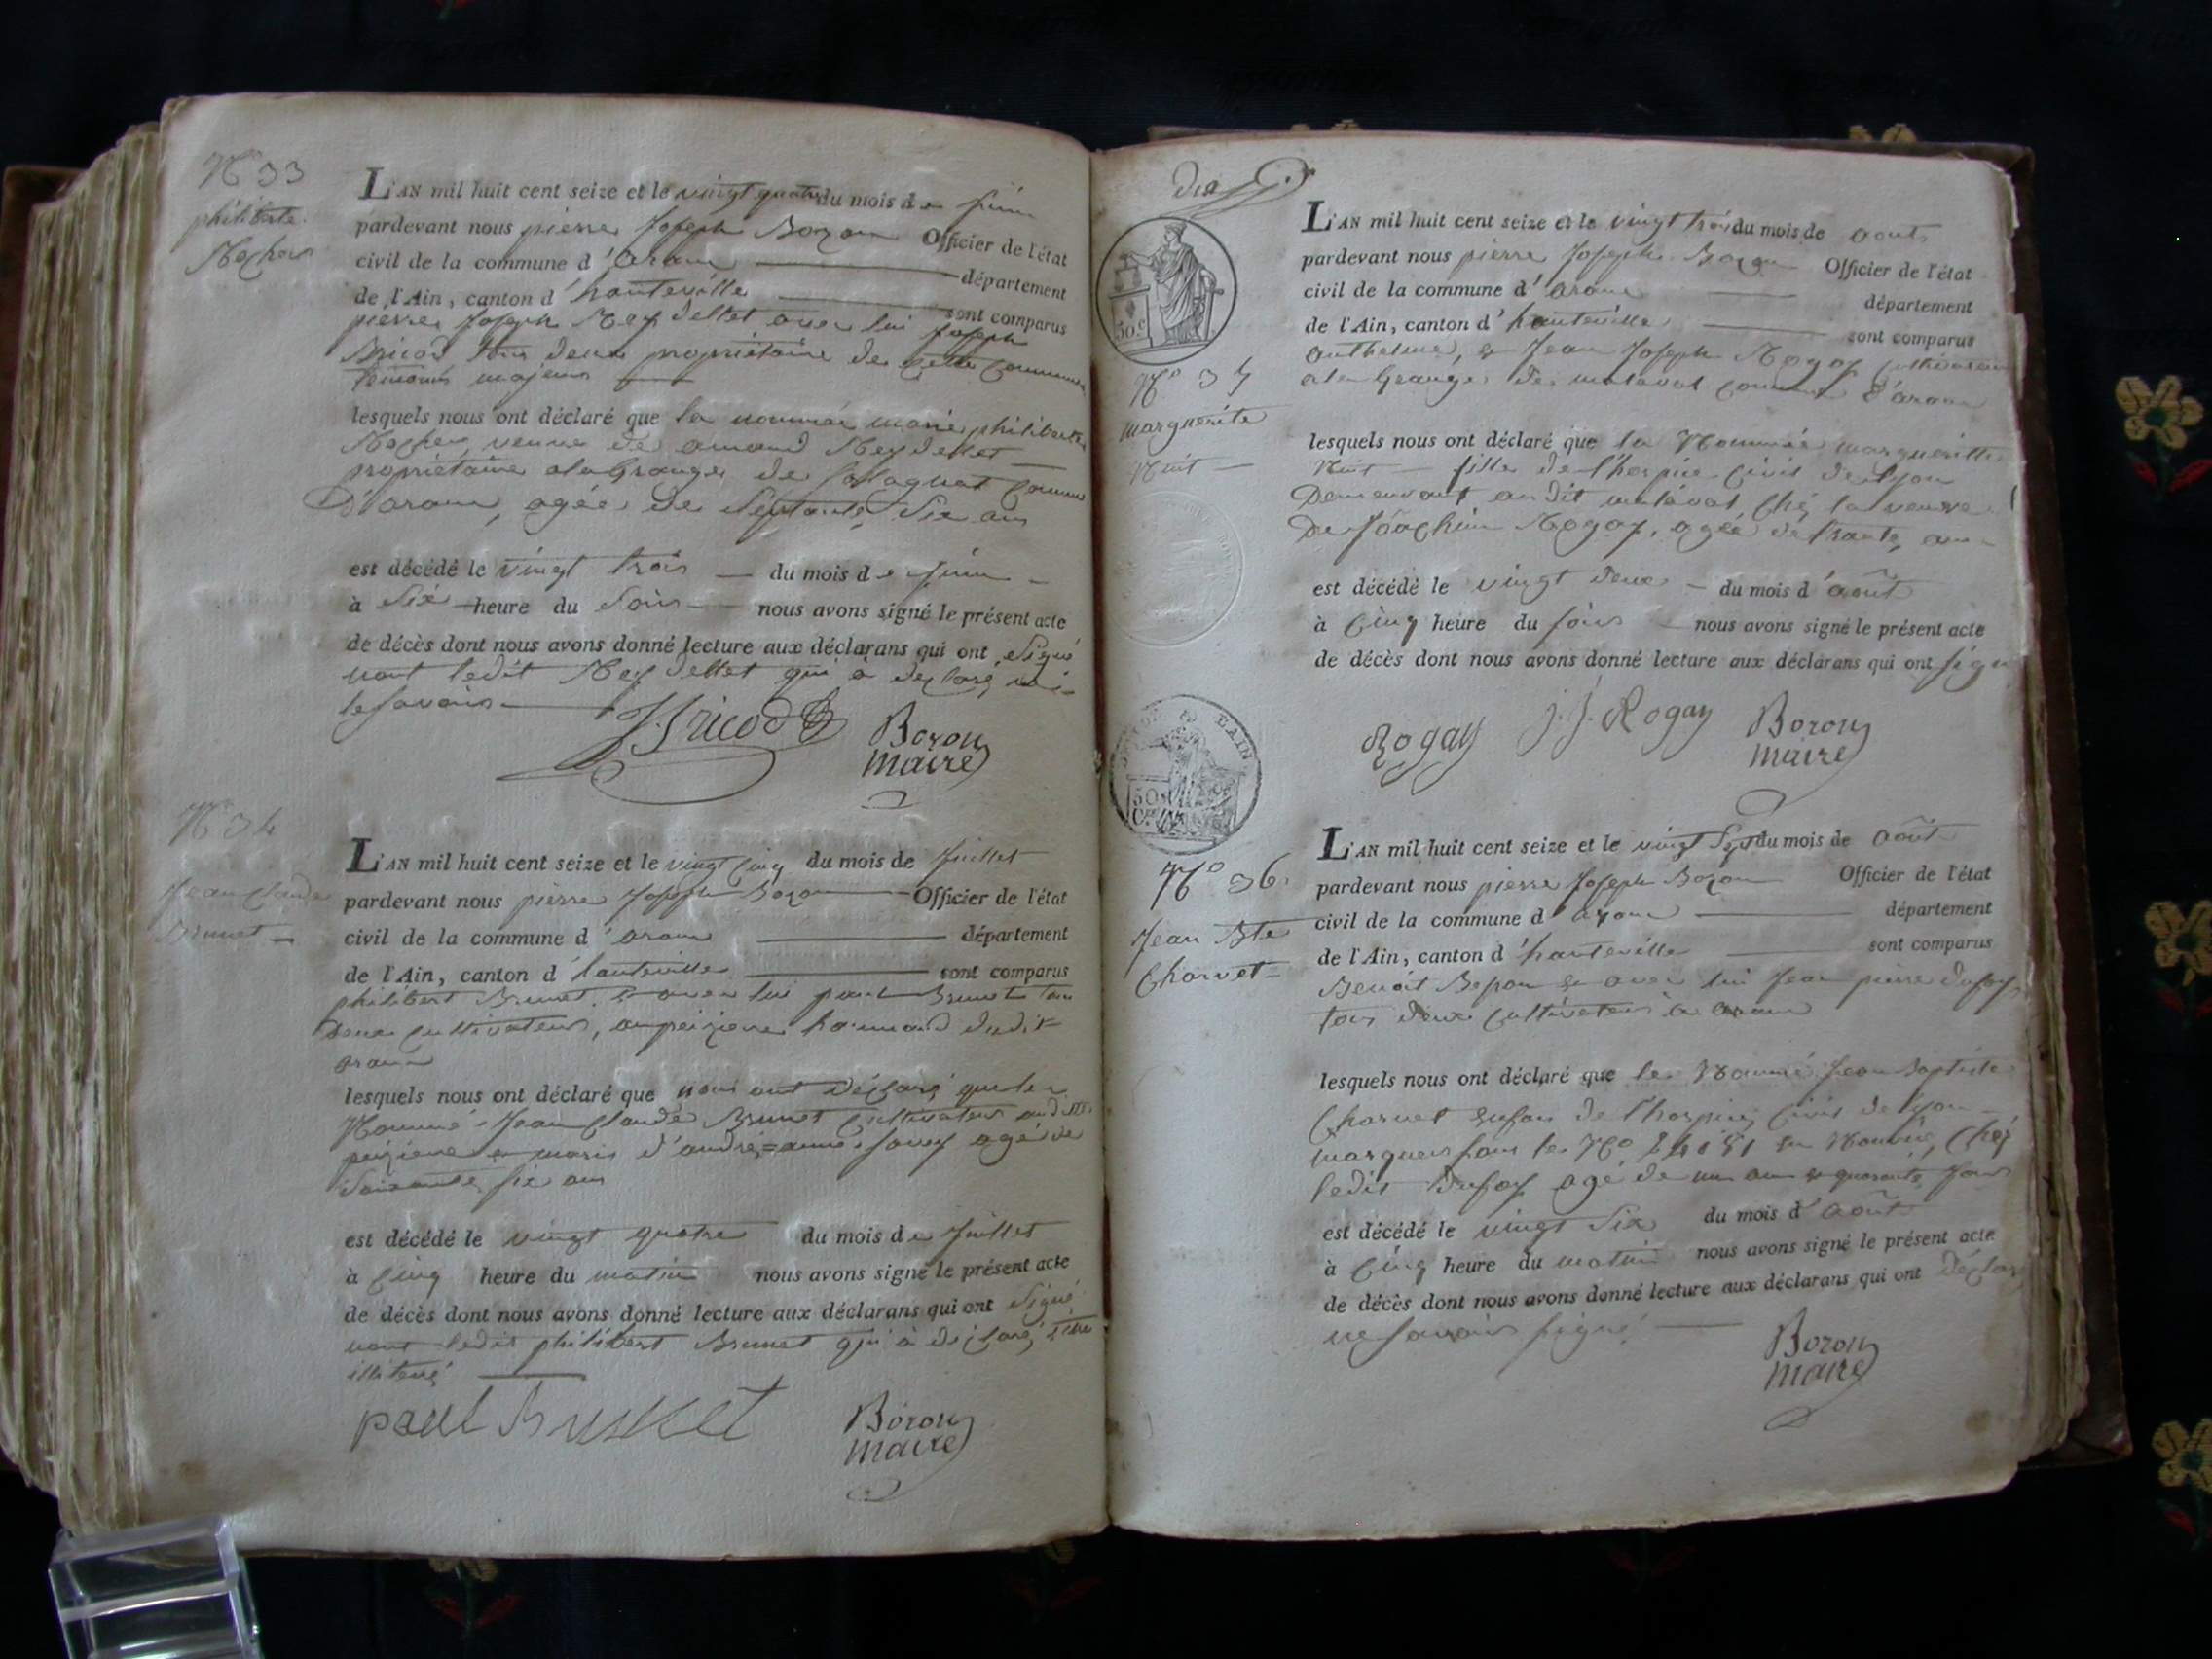 N.º 33
philiberte
L'AN mil huit cent seize et le vingt quatre du mois de juin
pardevant nous pierre Joseph Bozon Officier de l'état
civil de la commune d'aranc département
de l'Ain, canton d'hauteville sont comparus
pierre Joseph Reydellet avec lui Joseph
Savarin tous deux propriétaire de cette commune
temoins majeurs
lesquels nous ont déclaré que la nommée marie philiberte
veuve de amand Reydellet
propriétaire a la Grange de commune
D'aranc, agée de Septante Six ans
est décédé le vingt trois du mois de juin
à Six heure du Soir nous avons signé le présent acte
de décès dont nous avons donné lecture aux déclarans qui ont Signé
non ledit Reydellet qui à déclaré ne
le savoir
Bozon
maire
N.º 34
Jean Claude
Brunet
L'AN mil huit cent seize et le vingt cinq du mois de Juillet
pardevant nous pierre Joseph Bozon Officier de l'état
civil de la commune d'aranc département
de l'Ain, canton d'hauteville sont comparus
philibert Brunet, & avec lui paul Brunet tous
Deux cultivateurs, hameau dudit
aranc
lesquels nous ont déclaré que nous ont déclaré que le
Nommé Jean Claude Brunet Cultivateur audit
& maris d'andré anne agé de
Soixante six ans
est décédé le vingt quatre du mois de Juillet
à cinq heure du matin nous avons signé le présent acte
de décès dont nous avons donné lecture aux déclarans qui ont Signé
non ledit philibert Brunet qui à déclaré être
illiteré
paul Brunet
Bozon
maire
dix
50 c
N.º 35
marguerite
Nuit
L'AN mil huit cent seize et le vingt trois du mois de aout
pardevant nous pierre Joseph Bozon Officier de l'état
civil de la commune d'aranc département
de l'Ain, canton d'hauteville sont comparus
anthelme, & Jean Joseph Rogay cultivateurs
a la Grange de malaval commune d'aranc
lesquels nous ont déclaré que la Nommée margueritte
Nuit fille de l'hospice Civil de Lyon
Demeurant audit malaval, ché la veuve
De Joachim Rogay, agée de trante ans
est décédé le vingt deux du mois d'août
à cinq heure du soir nous avons signé le présent acte
de décès dont nous avons donné lecture aux déclarans qui ont signé
Rogay J. J. Rogay Bozon
maire
AIN
50
N.º 36
Jean Bte
Charvet
L'AN mil huit cent seize et le vingt Sept du mois de août
pardevant nous pierre Joseph Bozon Officier de l'état
civil de la commune d'aranc département
de l'Ain, canton d'hauteville sont comparus
Benoit & avec lui Jean pierre Dufay
tous deux Cultivateurs à aranc
lesquels nous ont déclaré que le Nommé Jean Baptiste
Charvet enfan de l'hospice Civil de Lyon
marquer sous le N.º en Nourrice, Chéz
ledit Dufay agé de un an & quarante Jours
est décédé le vingt Six du mois d'août
à cinq heure du matin nous avons signé le présent acte
de décès dont nous avons donné lecture aux déclarans qui ont déclaré
ne savoir signé
Bozon
maire